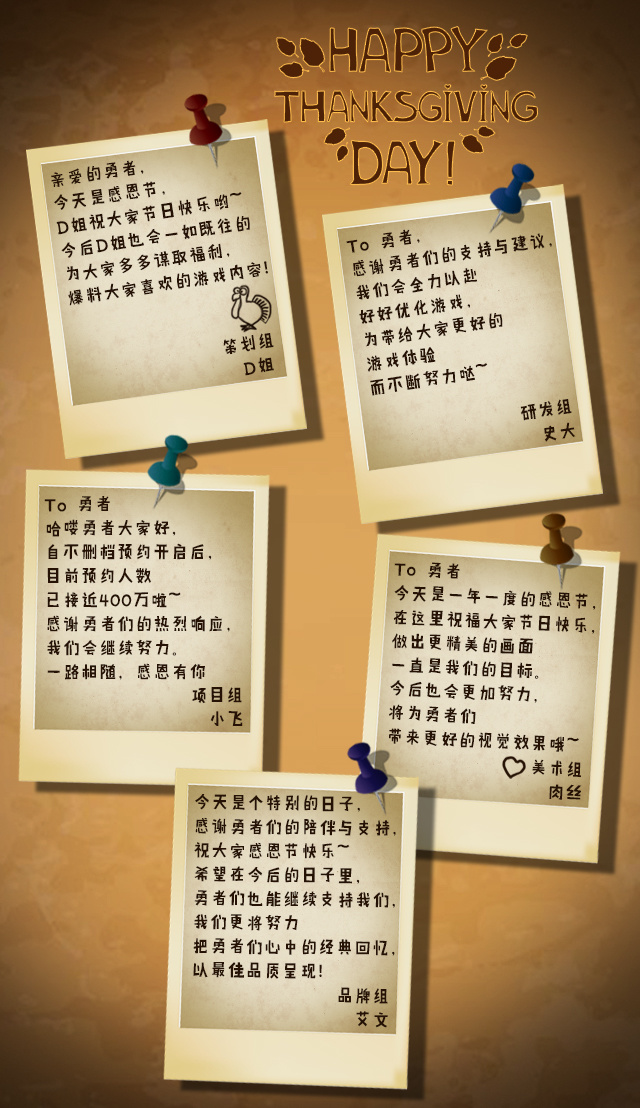 HAPPY
THANKSGIVING
DAY!
亲爱的勇者，
今天是感恩节，
D姐祝大家节日快乐哟~
今后D姐也会一如既往的
为大家多多谋取福利，
爆料大家喜欢的游戏内容!
策划组
D姐
To 勇者，
感谢勇者们的支持与建议，
我们会全力以赴
好好优化游戏，
为带给大家更好的
游戏体验
而不断努力哒~
研发组
史大
To 勇者
哈喽勇者大家好，
自不删档预约开启后，
目前预约人数
已接近400万啦~
感谢勇者们的热烈响应，
我们会继续努力。
一路相随，感恩有你
项目组
小飞
To 勇者
今天是一年一度的感恩节，
在这里祝福大家节日快乐，
做出更精美的画面
一直是我们的目标。
今后也会更加努力，
将为勇者们
带来更好的视觉效果哦~
美术组
肉丝
今天是个特别的日子，
感谢勇者们的陪伴与支持，
祝大家感恩节快乐~
希望在今后的日子里，
勇者们也能继续支持我们，
我们更将努力
把勇者们心中的经典回忆，
以最佳品质呈现!
品牌组
艾文